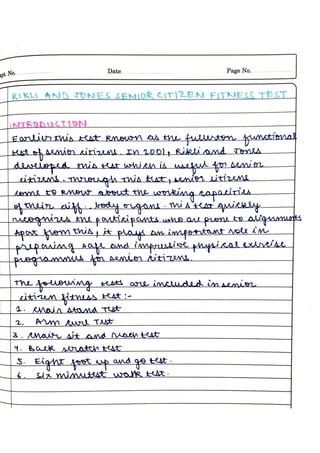 Expt. No.
Date
Page No.
RIKLI AND JONES SENIOR CITIZEN FITNESS TEST
INTRODUCTION
Earlier this test known as the fullerton functional
test of senior citizens. In 2001, Rikli and Jones
developed this test which is useful for senior
citizens. Through this test, senior citizens
come to know about the working capacities
of their diff. body organs. This test quickly
recognizes the participants who are prone to alignments
Apart from this, it plays an important role in
preparing safe and impressive physical exercise
programmes for senior citizens.
The following tests are included in senior
citizen fitness test :-
1. Chair Stand Test
2. Arm curl Test
3. Chair sit and reach test
4. Back scratch test
5. Eight foot up and go test.
6. Six minutest walk test.